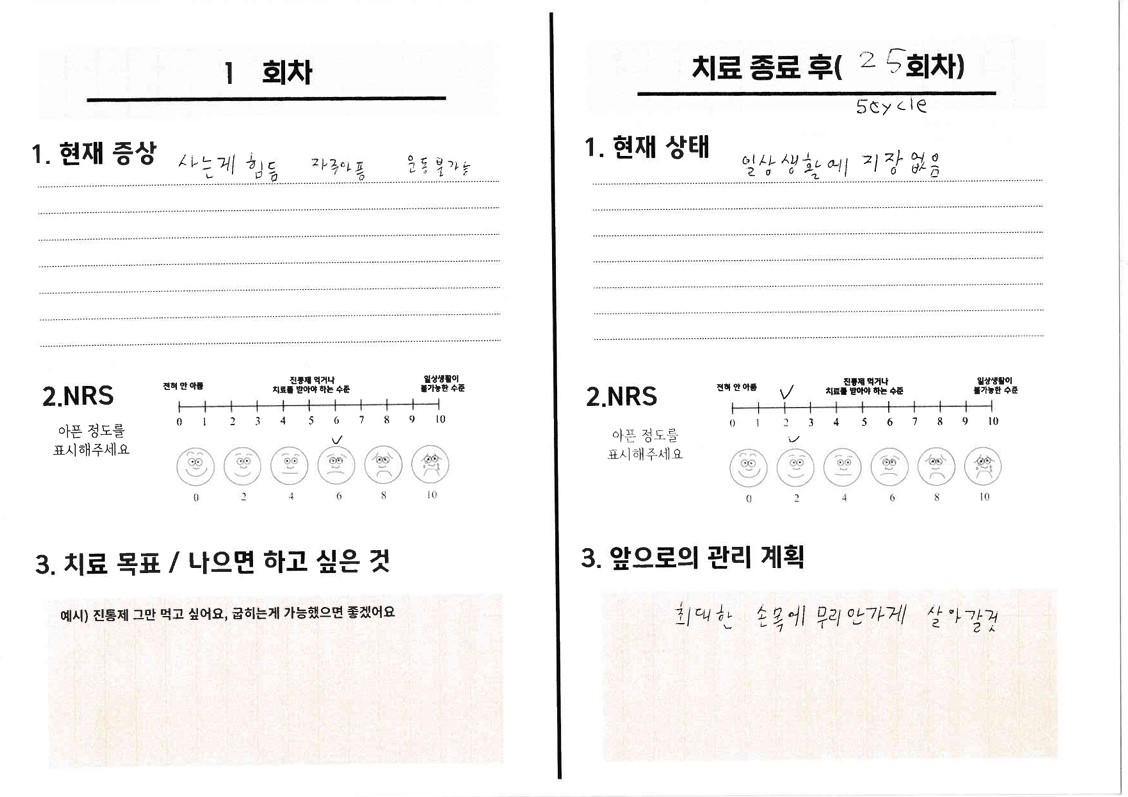 1 회차
1. 현재 증상 사는게 힘듬 자주아픔 운동불가능
2.NRS
아픈 정도를
표시해주세요
전혀 안 아픔
진통제 먹거나
치료를 받아야 하는 수준
일상생활이
불가능한 수준
0 1 2 3 4 5 6 7 8 9 10
0 2 4 6 8 10
3. 치료 목표 / 나으면 하고 싶은 것
예시) 진통제 그만 먹고 싶어요, 굽히는게 가능했으면 좋겠어요
치료 종료 후( 25회차)
5cycle
1. 현재 상태 일상생활에 지장없음
2.NRS
아픈 정도를
표시해주세요
전혀 안 아픔
진통제 먹거나
치료를 받아야 하는 수준
일상생활이
불가능한 수준
0 1 2 3 4 5 6 7 8 9 10
0 2 4 6 8 10
3. 앞으로의 관리 계획
최대한 손목에 무리안가게 살아갈것